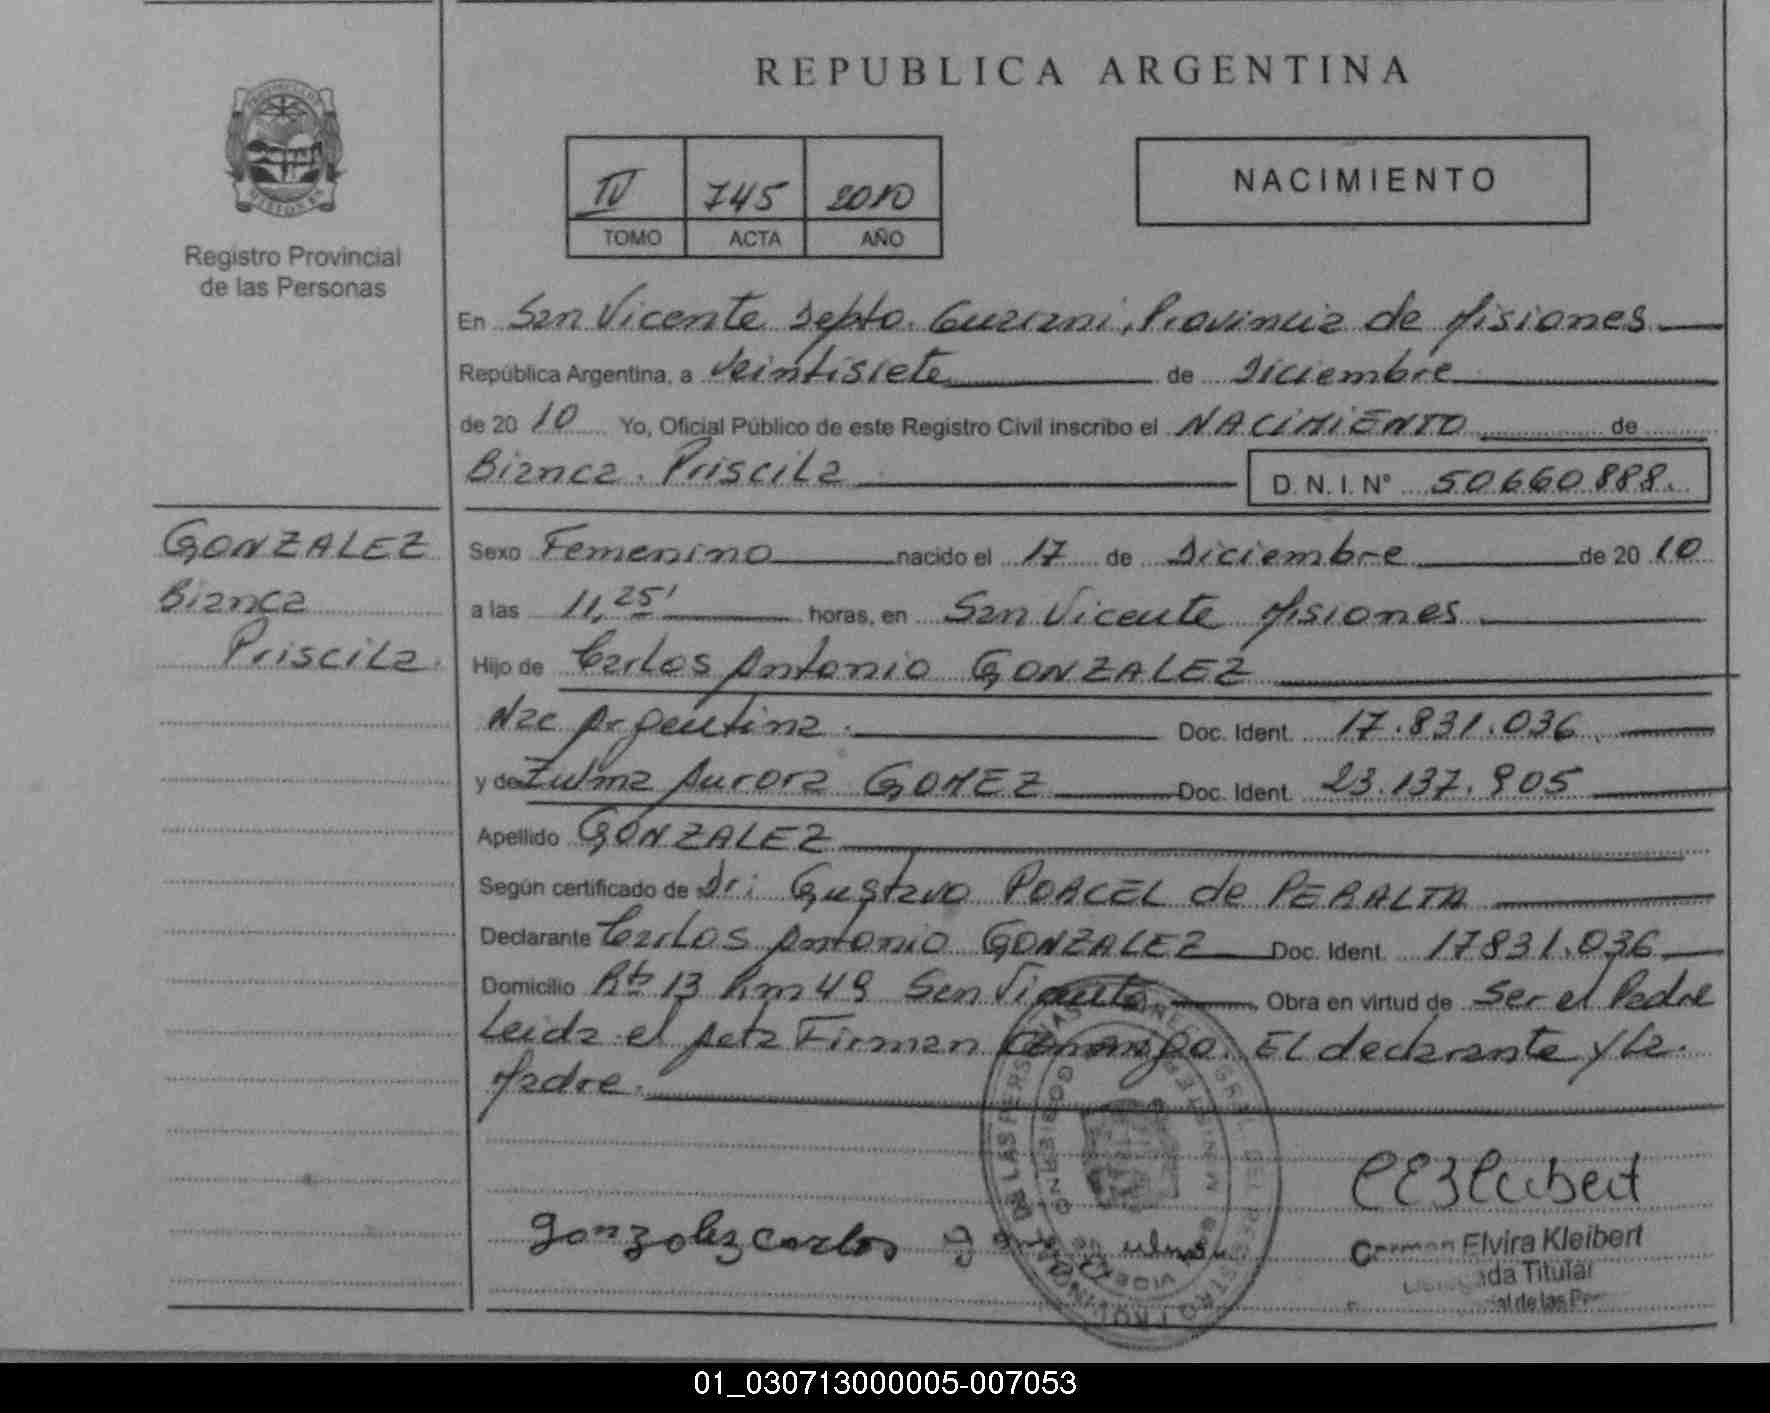 REPUBLICA ARGENTINA
PROVINCIA DE
MISIONES
Registro Provincial
de las Personas
IV 745 2010
TOMO ACTA AÑO
NACIMIENTO
En San Vicente Depto. Guarani, Provincia de Misiones
República Argentina, a Veintisiete de Diciembre
de 20 10 Yo, Oficial Público de este Registro Civil inscribo el NACIMIENTO de
Bianca Priscila D.N.I. Nº 50660888.
GONZALEZ
Bianca
Priscila.
Sexo Femenino nacido el 17 de Diciembre de 20 10
a las 11,25' horas, en San Vicente Misiones
Hijo de Carlos Antonio GONZALEZ
Nac Argentina. Doc. Ident. 17.831.036
y de Zulma Aurora GOMEZ Doc. Ident. 23.137.905
Apellido GONZALEZ
Según certificado de Dr: Gustavo PORCEL de PERALTA
Declarante Carlos Antonio GONZALEZ Doc. Ident. 17831.036
Domicilio Rta 13 Km 49 San Vicente Obra en virtud de Ser el Padre
Leida el Acta Firman Conmigo. El declarante y la
Madre.
gonzalez carlos
Carmen Elvira Kleibert
Titular
01_030713000005-007053